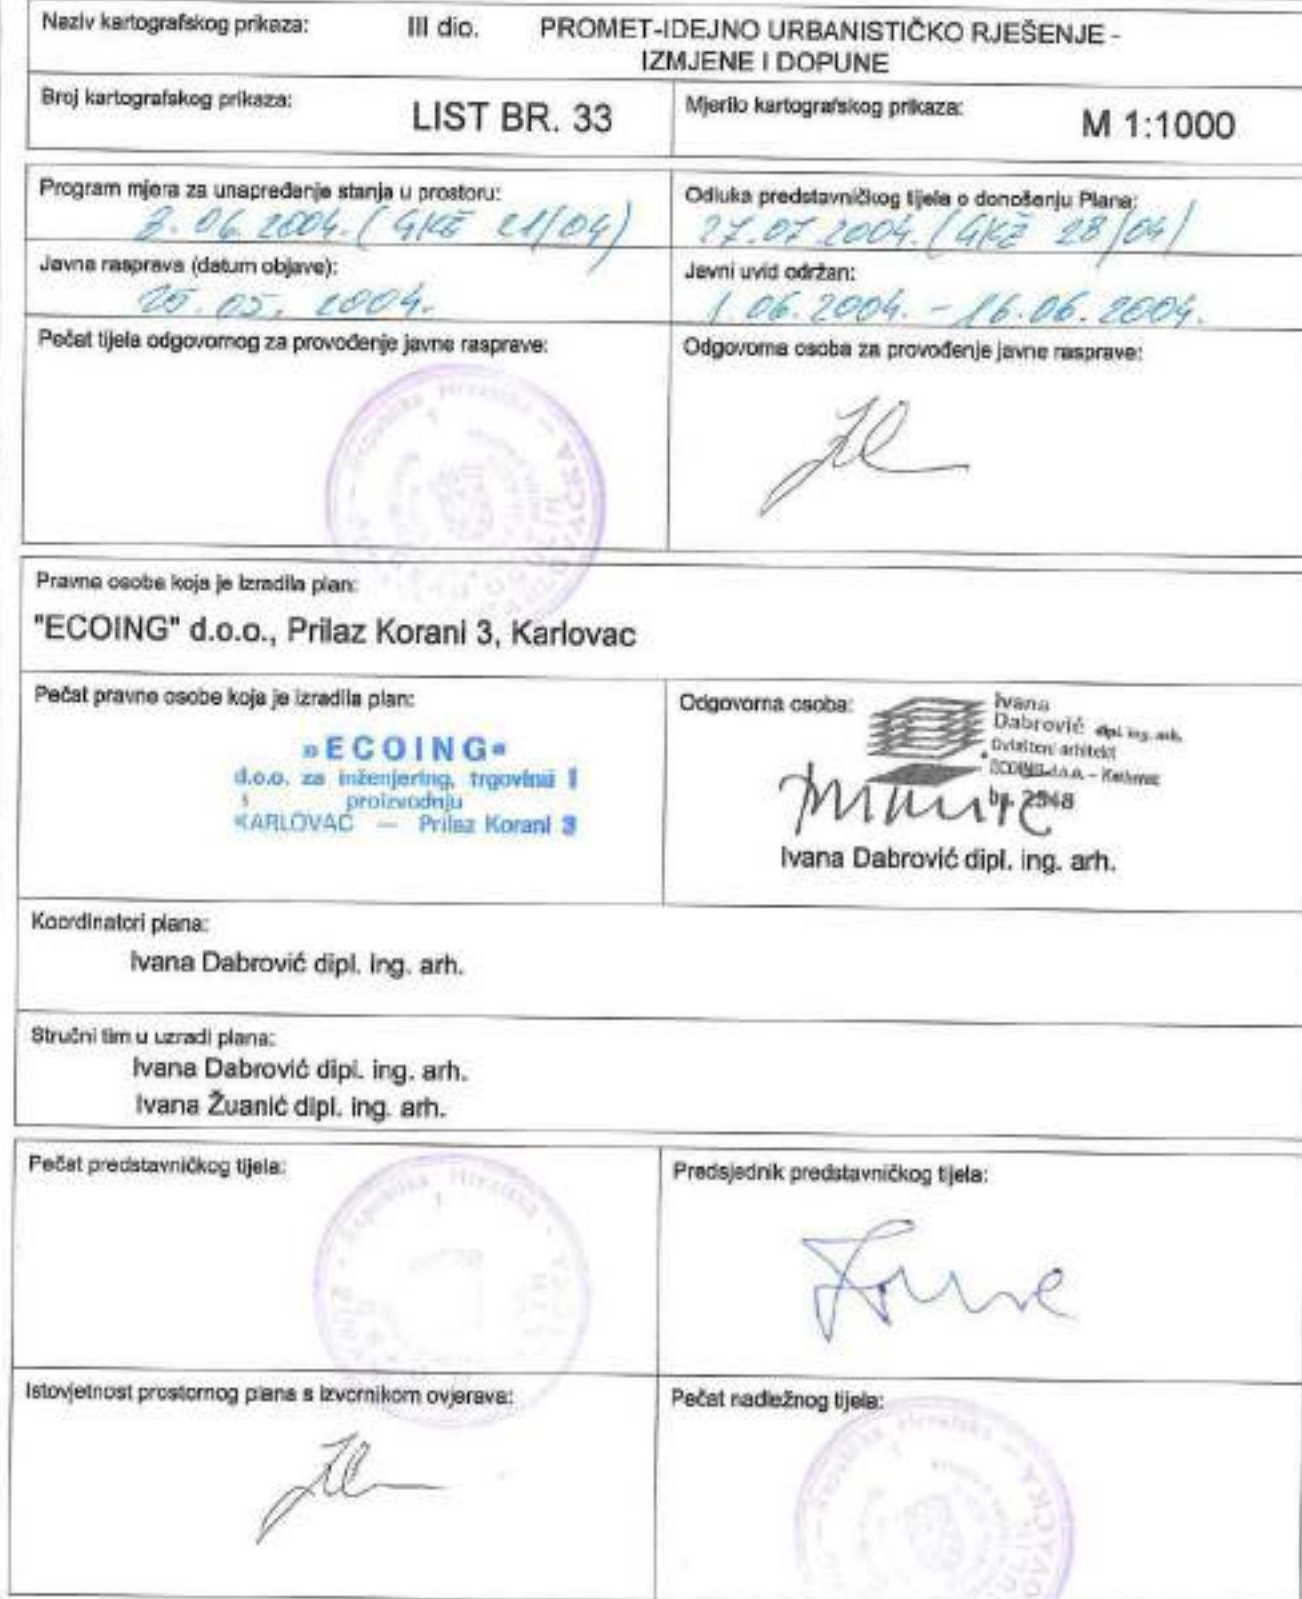 Naziv kartografskog prikaza: III dio. PROMET-IDEJNO URBANISTIČKO RJEŠENJE -
IZMJENE I DOPUNE
Broj kartografskog prikaza: LIST BR. 33
Mjerilo kartografskog prikaza: M 1:1000
Program mjera za unapređenje stanja u prostoru:
06. 2004. ( GKŽ 21/04)
Odluka predstavničkog tijela o donošenju Plana:
27.07.2004. (GKŽ 28/04)
Javna rasprava (datum objave):
25. 05. 2004.
Javni uvid održan:
1 06. 2004. - 16.06. 2004.
Pečat tijela odgovornog za provođenje javne rasprave:
Odgovorna osoba za provođenje javne rasprave:
Republika Hrvatska
Pravna osoba koja je izradila plan:
"ECOING" d.o.o., Prilaz Korani 3, Karlovac
Pečat pravne osobe koja je izradila plan:
»ECOING«
d.o.o. za inženjering, trgovinu i
proizvodnju
KARLOVAC — Prilaz Korani 3
Odgovorna osoba:
Ivana
Dabrović dipl. ing. arh.
Ovlašteni arhitekt
ECOING d.o.o. – Karlovac
br. 2548
Ivana Dabrović dipl. ing. arh.
Koordinatori plana:
Ivana Dabrović dipl. ing. arh.
Stručni tim u uzradi plana:
Ivana Dabrović dipl. ing. arh.
Ivana Žuanić dipl. ing. arh.
Pečat predstavničkog tijela:
Republika Hrvatska
Predsjednik predstavničkog tijela:
Istovjetnost prostornog plana s izvornikom ovjerava:
Pečat nadležnog tijela:
Republika Hrvatska